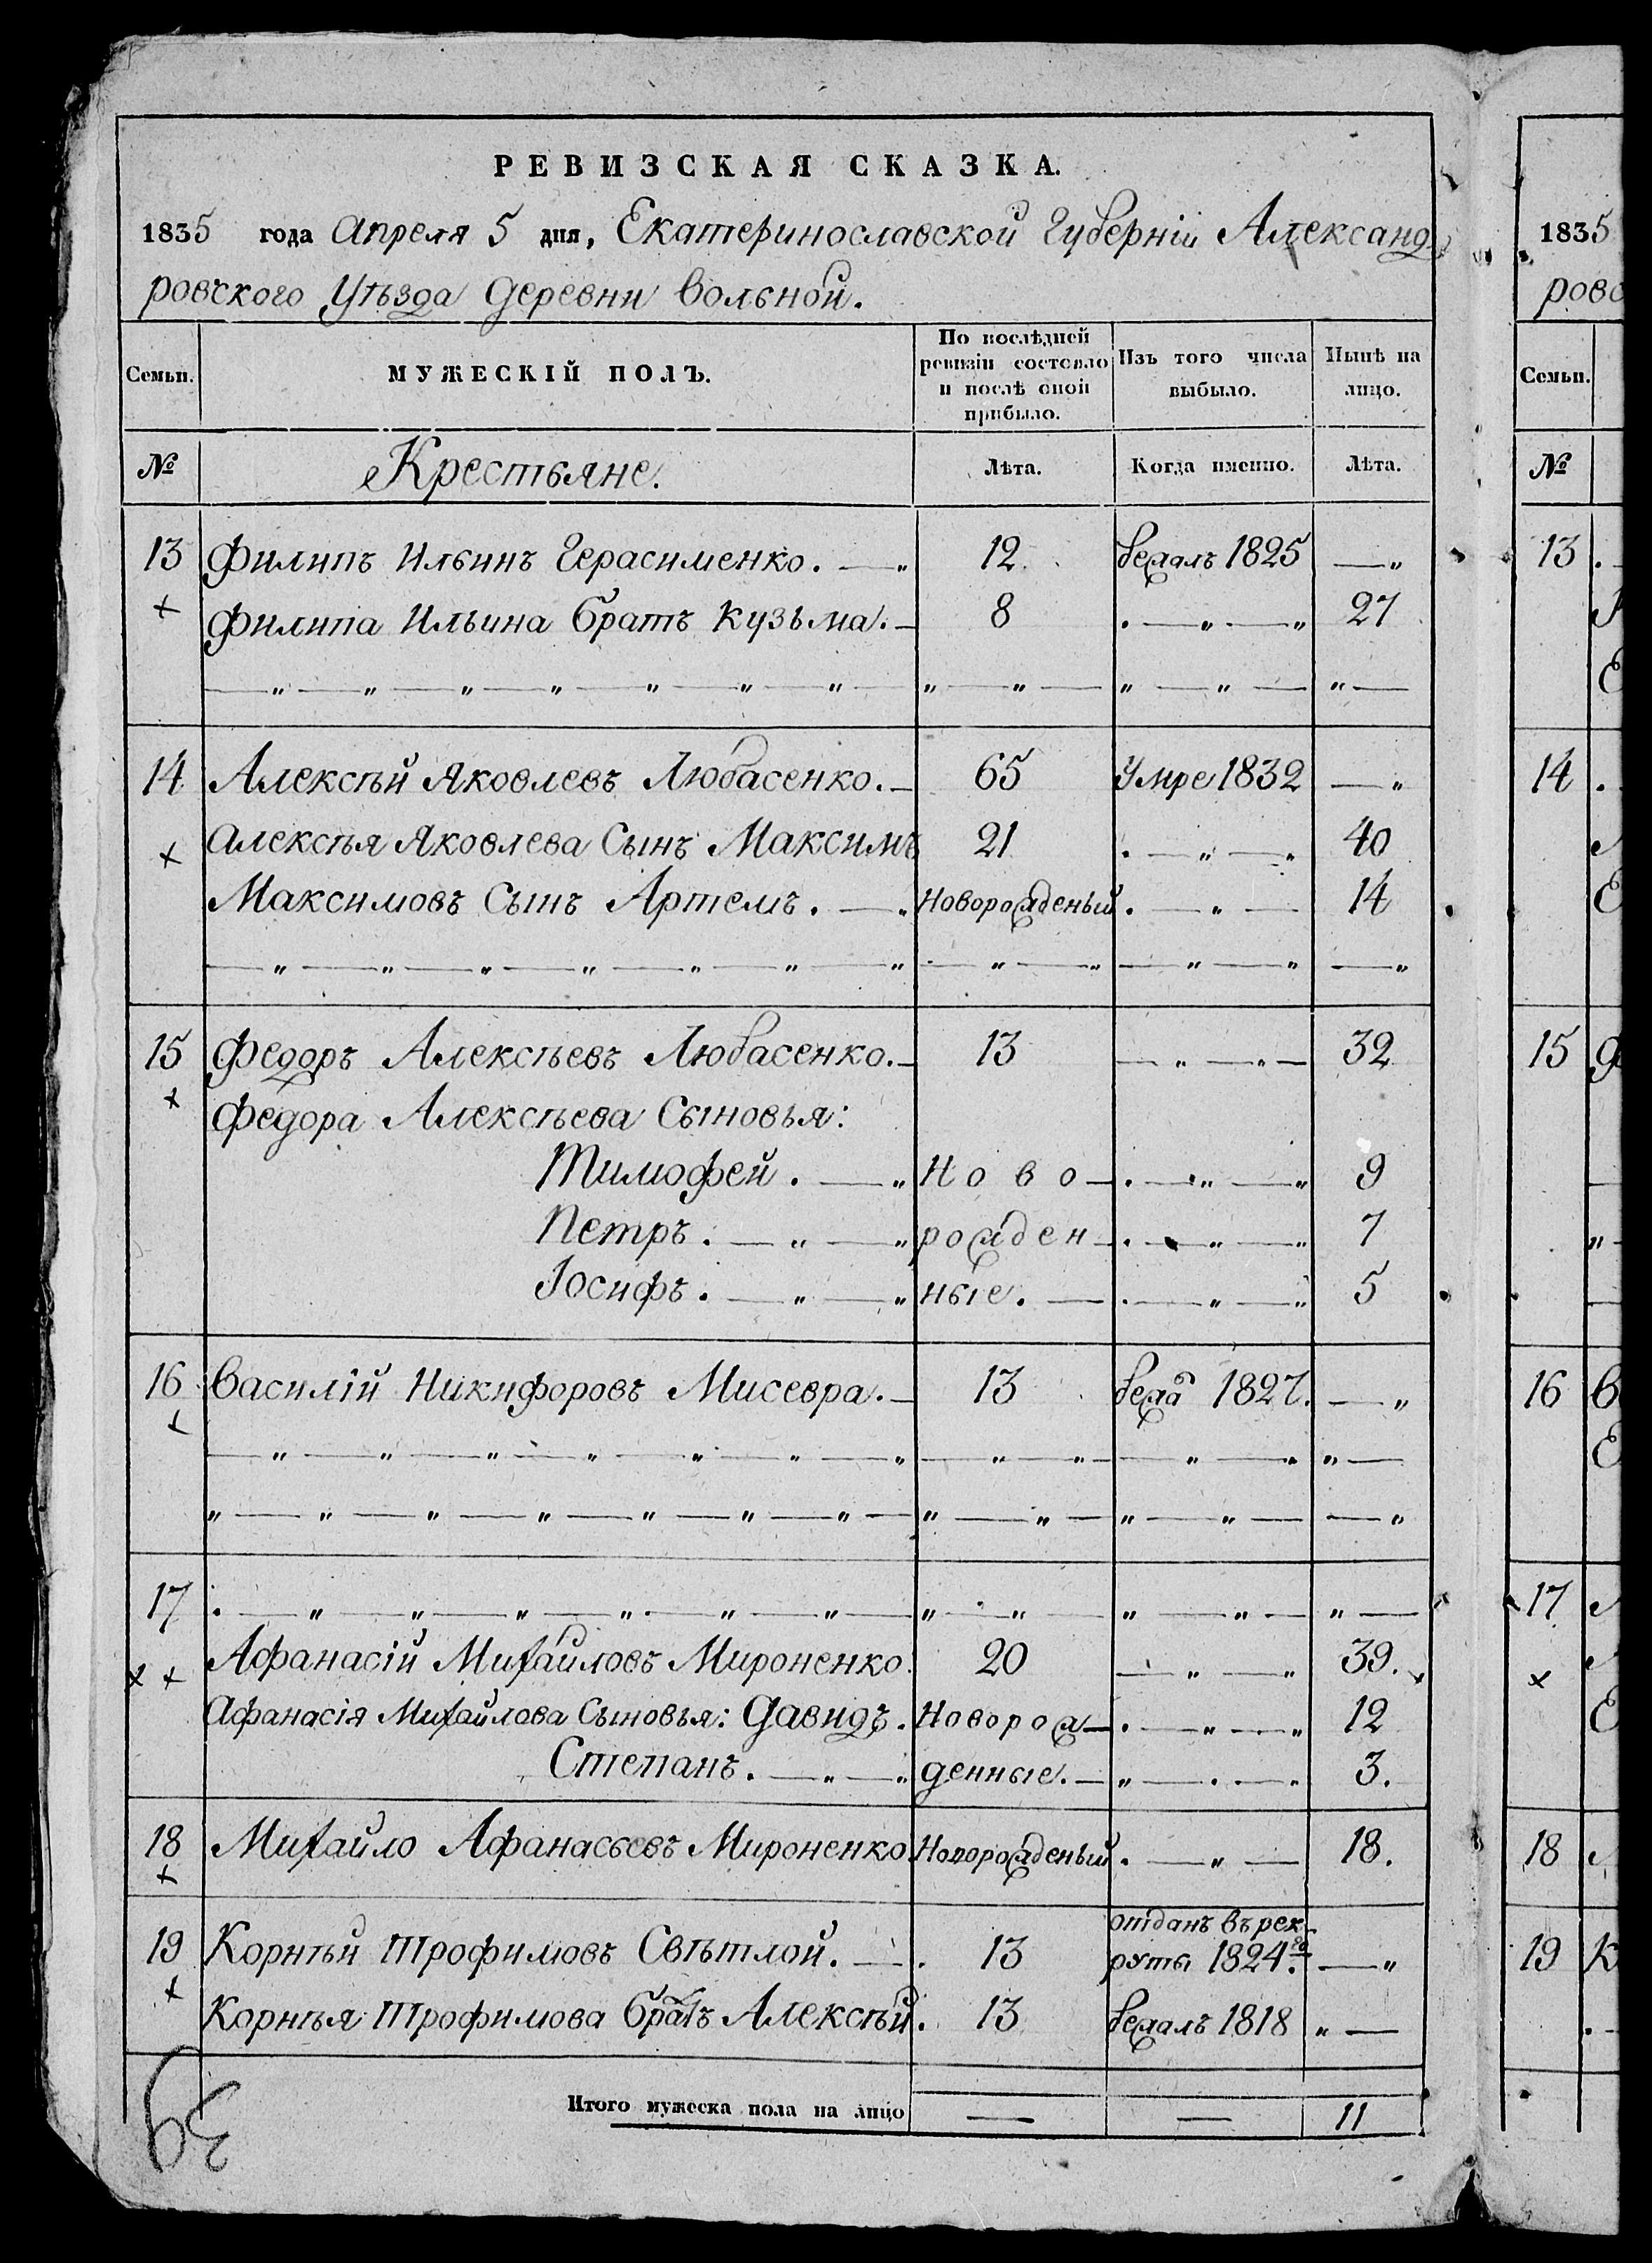 РЕВИЗСКАЯ СКАЗКА.
1835 года Апреля 5 дня, Екатеринославской Губерніи Александ
ровского Уѣзда Деревни Вольной.
Семьи. МУЖЕСКІЙ ПОЛЪ. По послѣдней ревизіи состояло и послѣ оной прибыло. Изъ того числа выбыло. Нынѣ на лицо.
№ Крестьяне. Лѣта. Когда именно. Лѣта.
13 Филипъ Ильинъ Герасименко. 12 бежалъ 1825 — „
Филипа Ильина Братъ Кузьма. 8 27
14 Алексѣй Яковлевъ Любасенко. 65 Умре 1832 — „
Алексѣя Яковлева Сынъ Максимъ 21 40
Максимовъ Сынъ Артемъ. Новорожденый 14
15 Федоръ Алексѣевъ Любасенко. 13 32
Федора Алексѣева Сыновья:
Тимофей. Ново 9
Петръ. рожден 7
Іосифъ. ные. 5
16 Василій Никифоровъ Мисевра. 13 бежа 1827. — „
17
Афанасій Михайловъ Мироненко. 20 39.
Афанасія Михайлова Сыновья: Давидъ. Новорож 12
Степанъ. денные. 3.
18 Михайло Афанасьевъ Мироненко Новорожденый 18.
19 Корнѣй Трофимовъ Свѣтлой. 13 отданъ въ рек-
руты 1824го. — „
Корнѣя Трофимова Братъ Алексѣй. 13 бежалъ 1818 „ —
Итого мужеска пола на лицо — — 11
39
1835
ровс
Семьи.
№
13
14
15
16
17
18
19